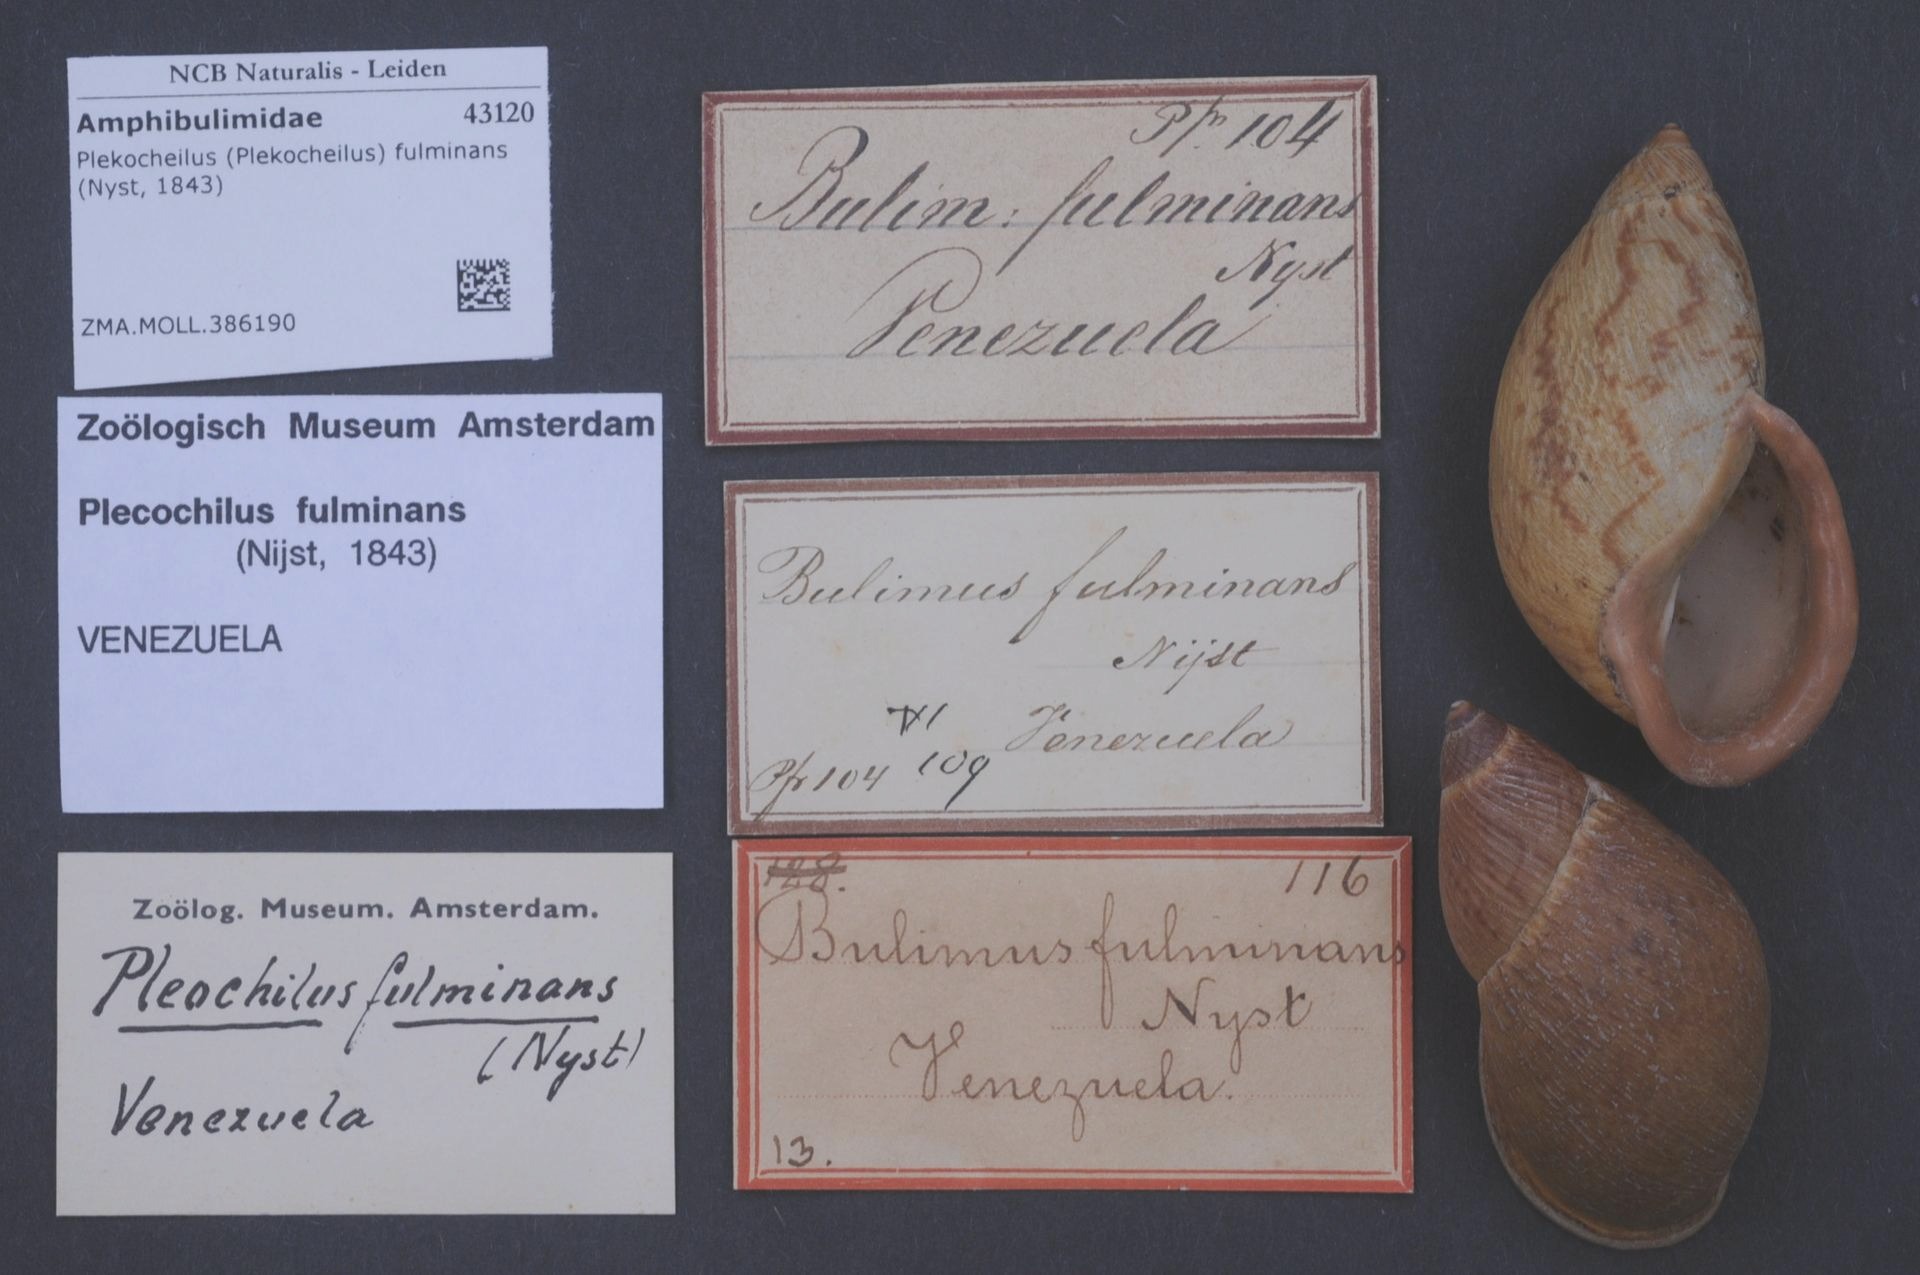 NCB Naturalis - Leiden
Amphibulimidae 43120
Plekocheilus (Plekocheilus) fulminans
(Nyst, 1843)
ZMA.MOLL.386190
Zoölogisch Museum Amsterdam
Plecochilus fulminans
(Nijst, 1843)
VENEZUELA
Zoölog. Museum. Amsterdam.
Pleochilus fulminans
(Nyst)
Venezuela
Pfr. 104
Bulim: fulminans
Nyst
Venezuela
Bulimus fulminans
Nijst
Venezuela
Pfr 104 109
128. 116
Bulimus fulminans
Nyst
Venezuela.
13.